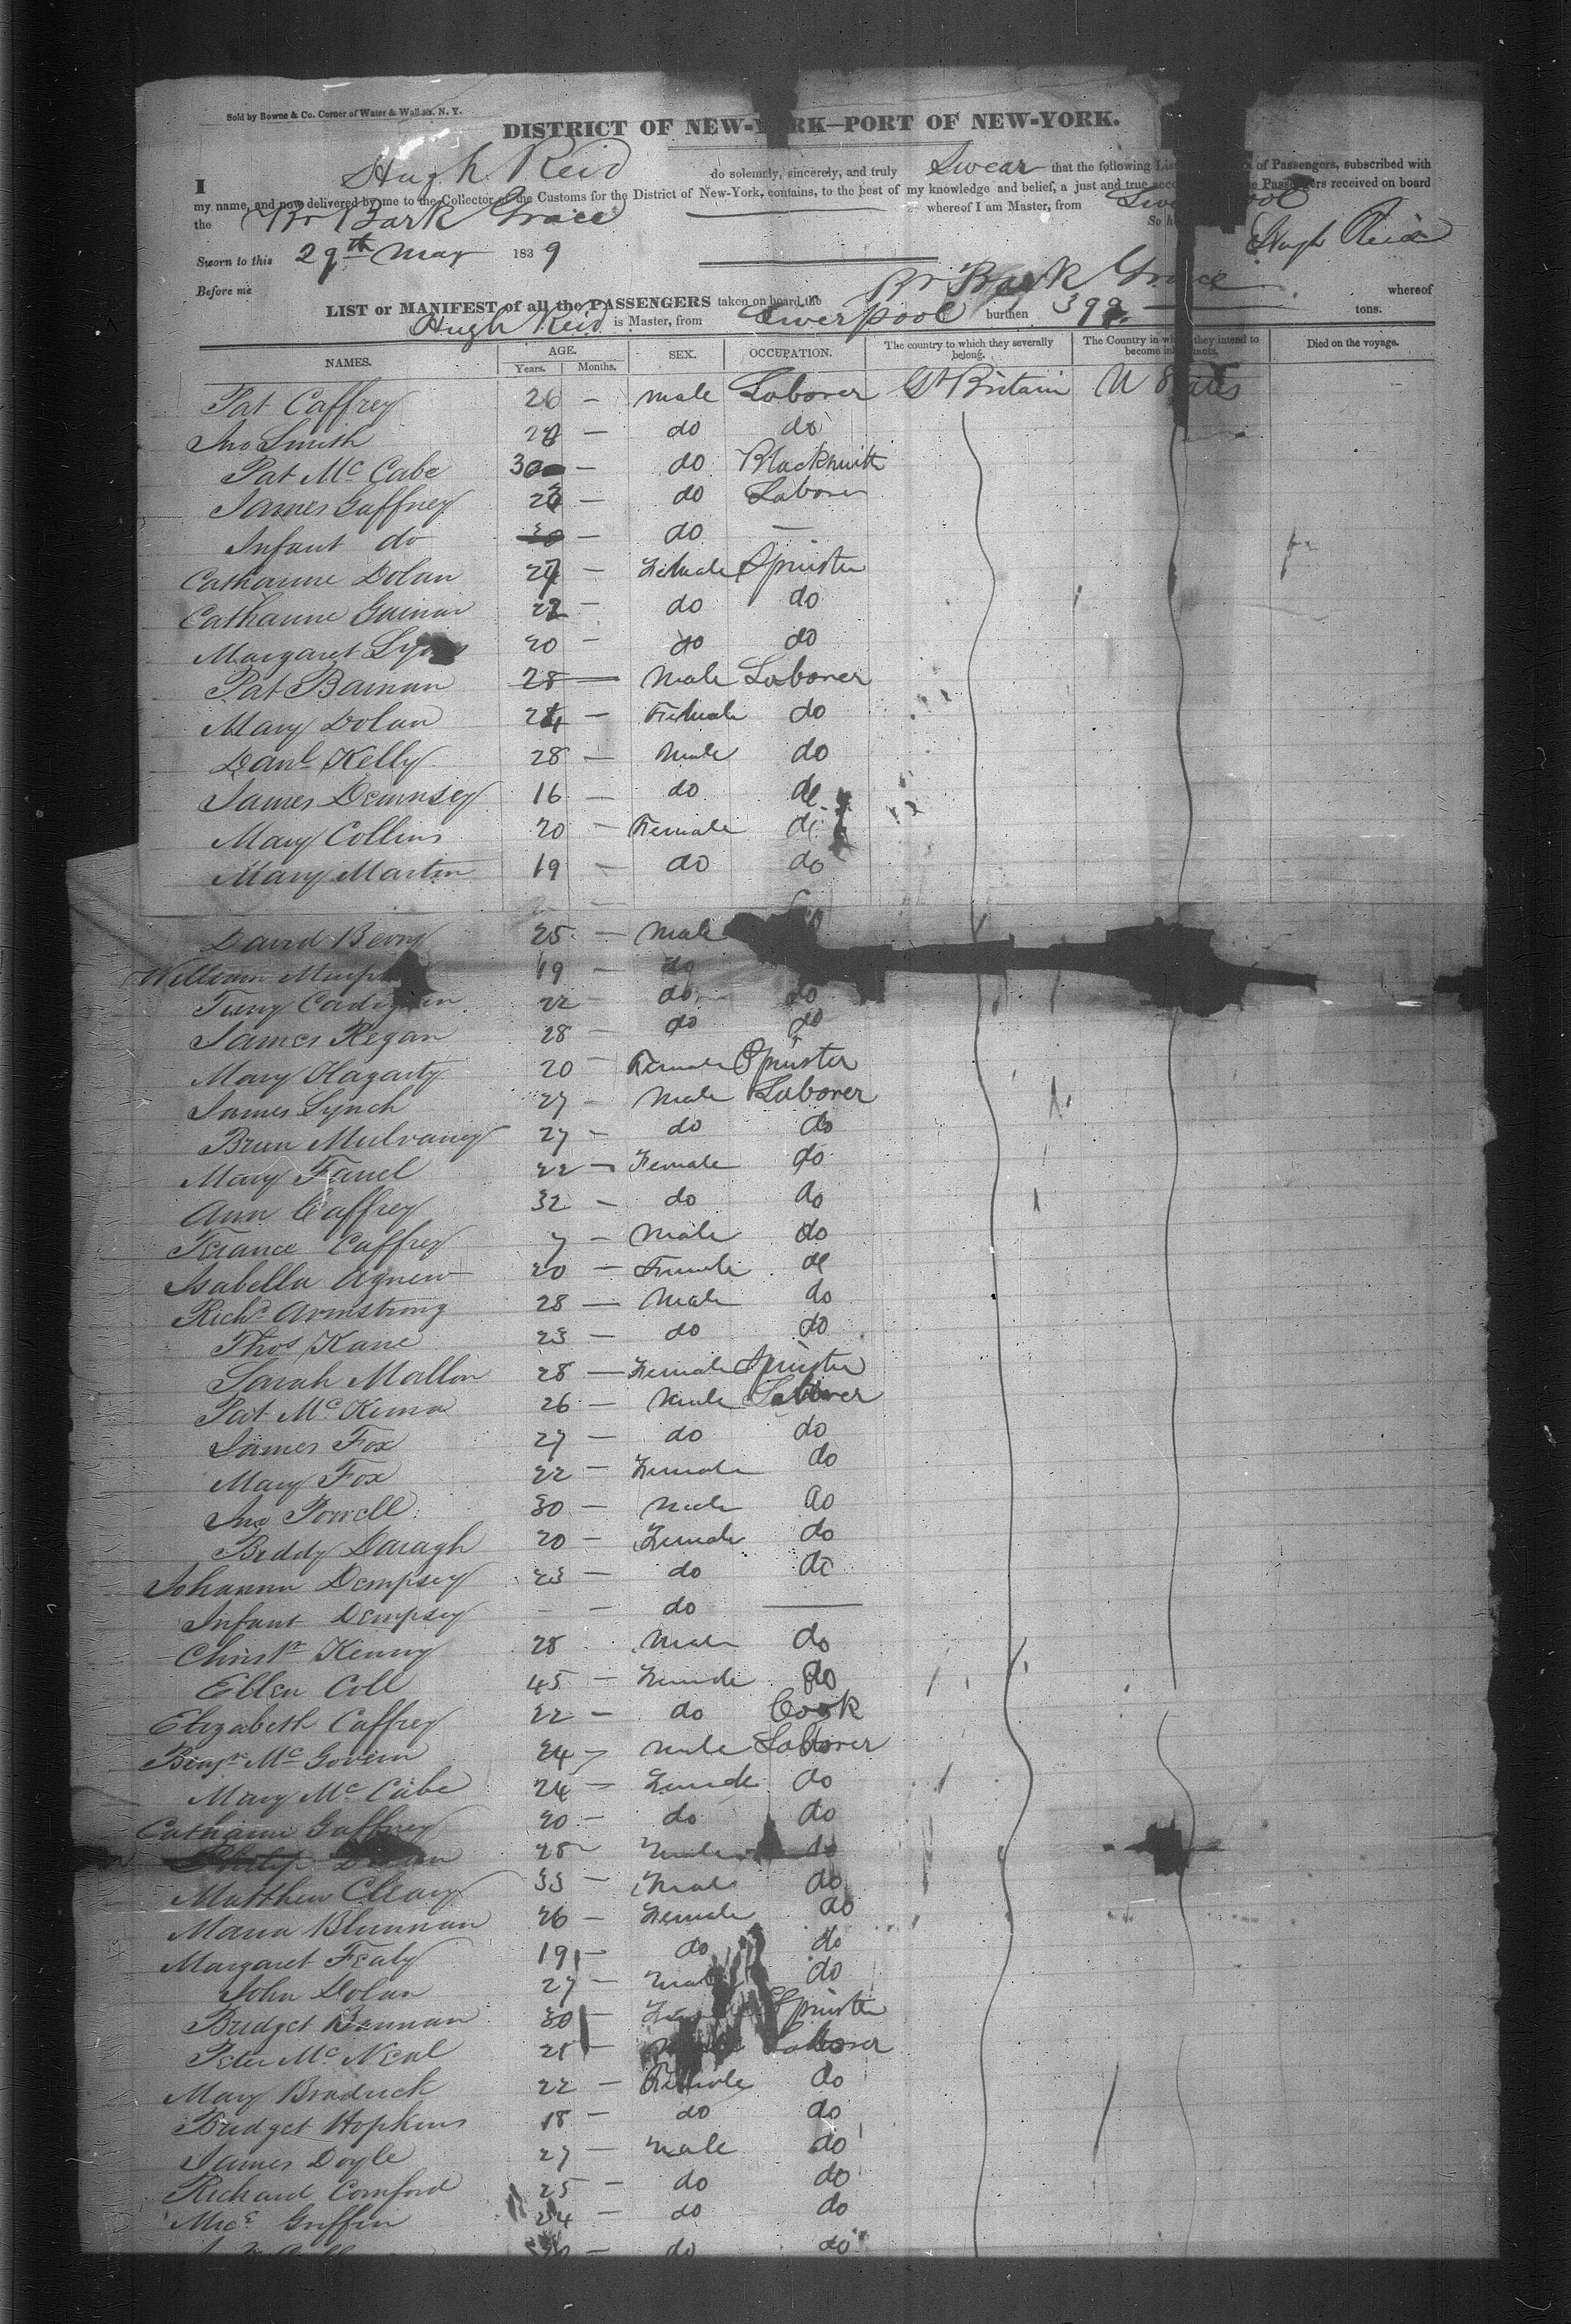 Sold by Bowne & Co. Corner of Water & Wall-sts. N. Y.
DISTRICT OF NEW-YORK—PORT OF NEW-YORK.
I Hugh Reid do solemnly, sincerely, and truly Swear that the following List of Passengers, subscribed with
my name, and now delivered by me to the Collector of the Customs for the District of New-York, contains, to the best of my knowledge and belief, a just and true Passengers received on board
the Br Bark Grace whereof I am Master, from Liverpool
Sworn to this 29th May 1839 So h Hugh Reid
Before me
LIST or MANIFEST of all the PASSENGERS taken on board the Br Bark Grace whereof
Hugh Reid is Master, from Liverpool burthen 399 tons.
NAMES. AGE. SEX. OCCUPATION. The country to which they severally belong. The Country in which they intend to become inhabitants. Died on the voyage.
Years. Months.
Pat Caffrey 26 — male Laborer Gt Britain U States
Jno Smith 28 — do do
Pat Mc Cabe 30 — do Blacksmith
James Gaffney — do Laborer
Infant do — do —
Catharine Dolan 27 — Female Spinster
Catharine 22 — do do
Margaret 20 — do do
Pat 28 — Male Laborer
Mary Dolan 24 — Female do
Danl Kelly 28 — Male do
James Demnsey 16 — do do
Mary Collins 20 — Female do
Mary Martin 19 — do do
David 25 — Male
William 19 — do
22 — do do
James Regan 28 — do do
Mary Hagarty 20 — Female Spinster
James Lynch 27 — Male Laborer
Brien Mulvaney 27 — do do
Mary 22 — Female do
Ann Caffrey 32 — do do
Terance Caffrey 7 — Male do
Isabella Agnew 20 — Female do
Richd Armstrong 28 — Male do
Thos Kane 23 — do do
Sarah Mallon 28 — Female Spinster
Pat McKenna 26 — Male Laborer
James Fox 27 — do do
Mary Fox 22 — Female do
Jno Powell 30 — Male do
Biddy Daragh 20 — Female do
Johanna Dempsey 23 — do do
Infant Dempsey — — do —
Christr Kenny 28 Male do
Ellen Coll 45 — Female do
Elizabeth Caffrey 22 — do Cook
Benjn McGovern 24 — Male Laborer
Mary McCabe 24 — Female do
Catharine Gaffney 20 — do do
Philip 28 — Male do
Matthew Cleary 33 — Male do
Maria 26 — Female do
Margaret Fealy 19 — do do
John Dolan 27 — Male do
Bridget 30 — Spinster
Peter McNeal 25 — Laborer
Mary Bradrick 22 — Female do
Bridget Hopkins 18 — do do
James Doyle 27 — Male do
Richard Comford 25 — do do
Mice Griffin 24 — do do
— do do